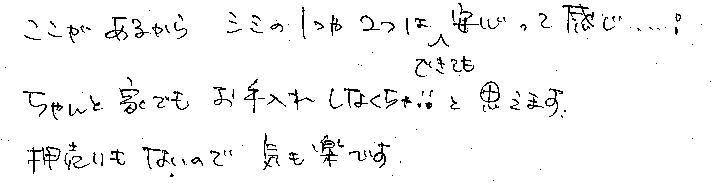 ここがあるから シミの1つや2つは できても 安心って感じ....!
ちゃんと家でも お手入れ しなくちゃ!!と思えます。
押売りも ないので 気も楽です